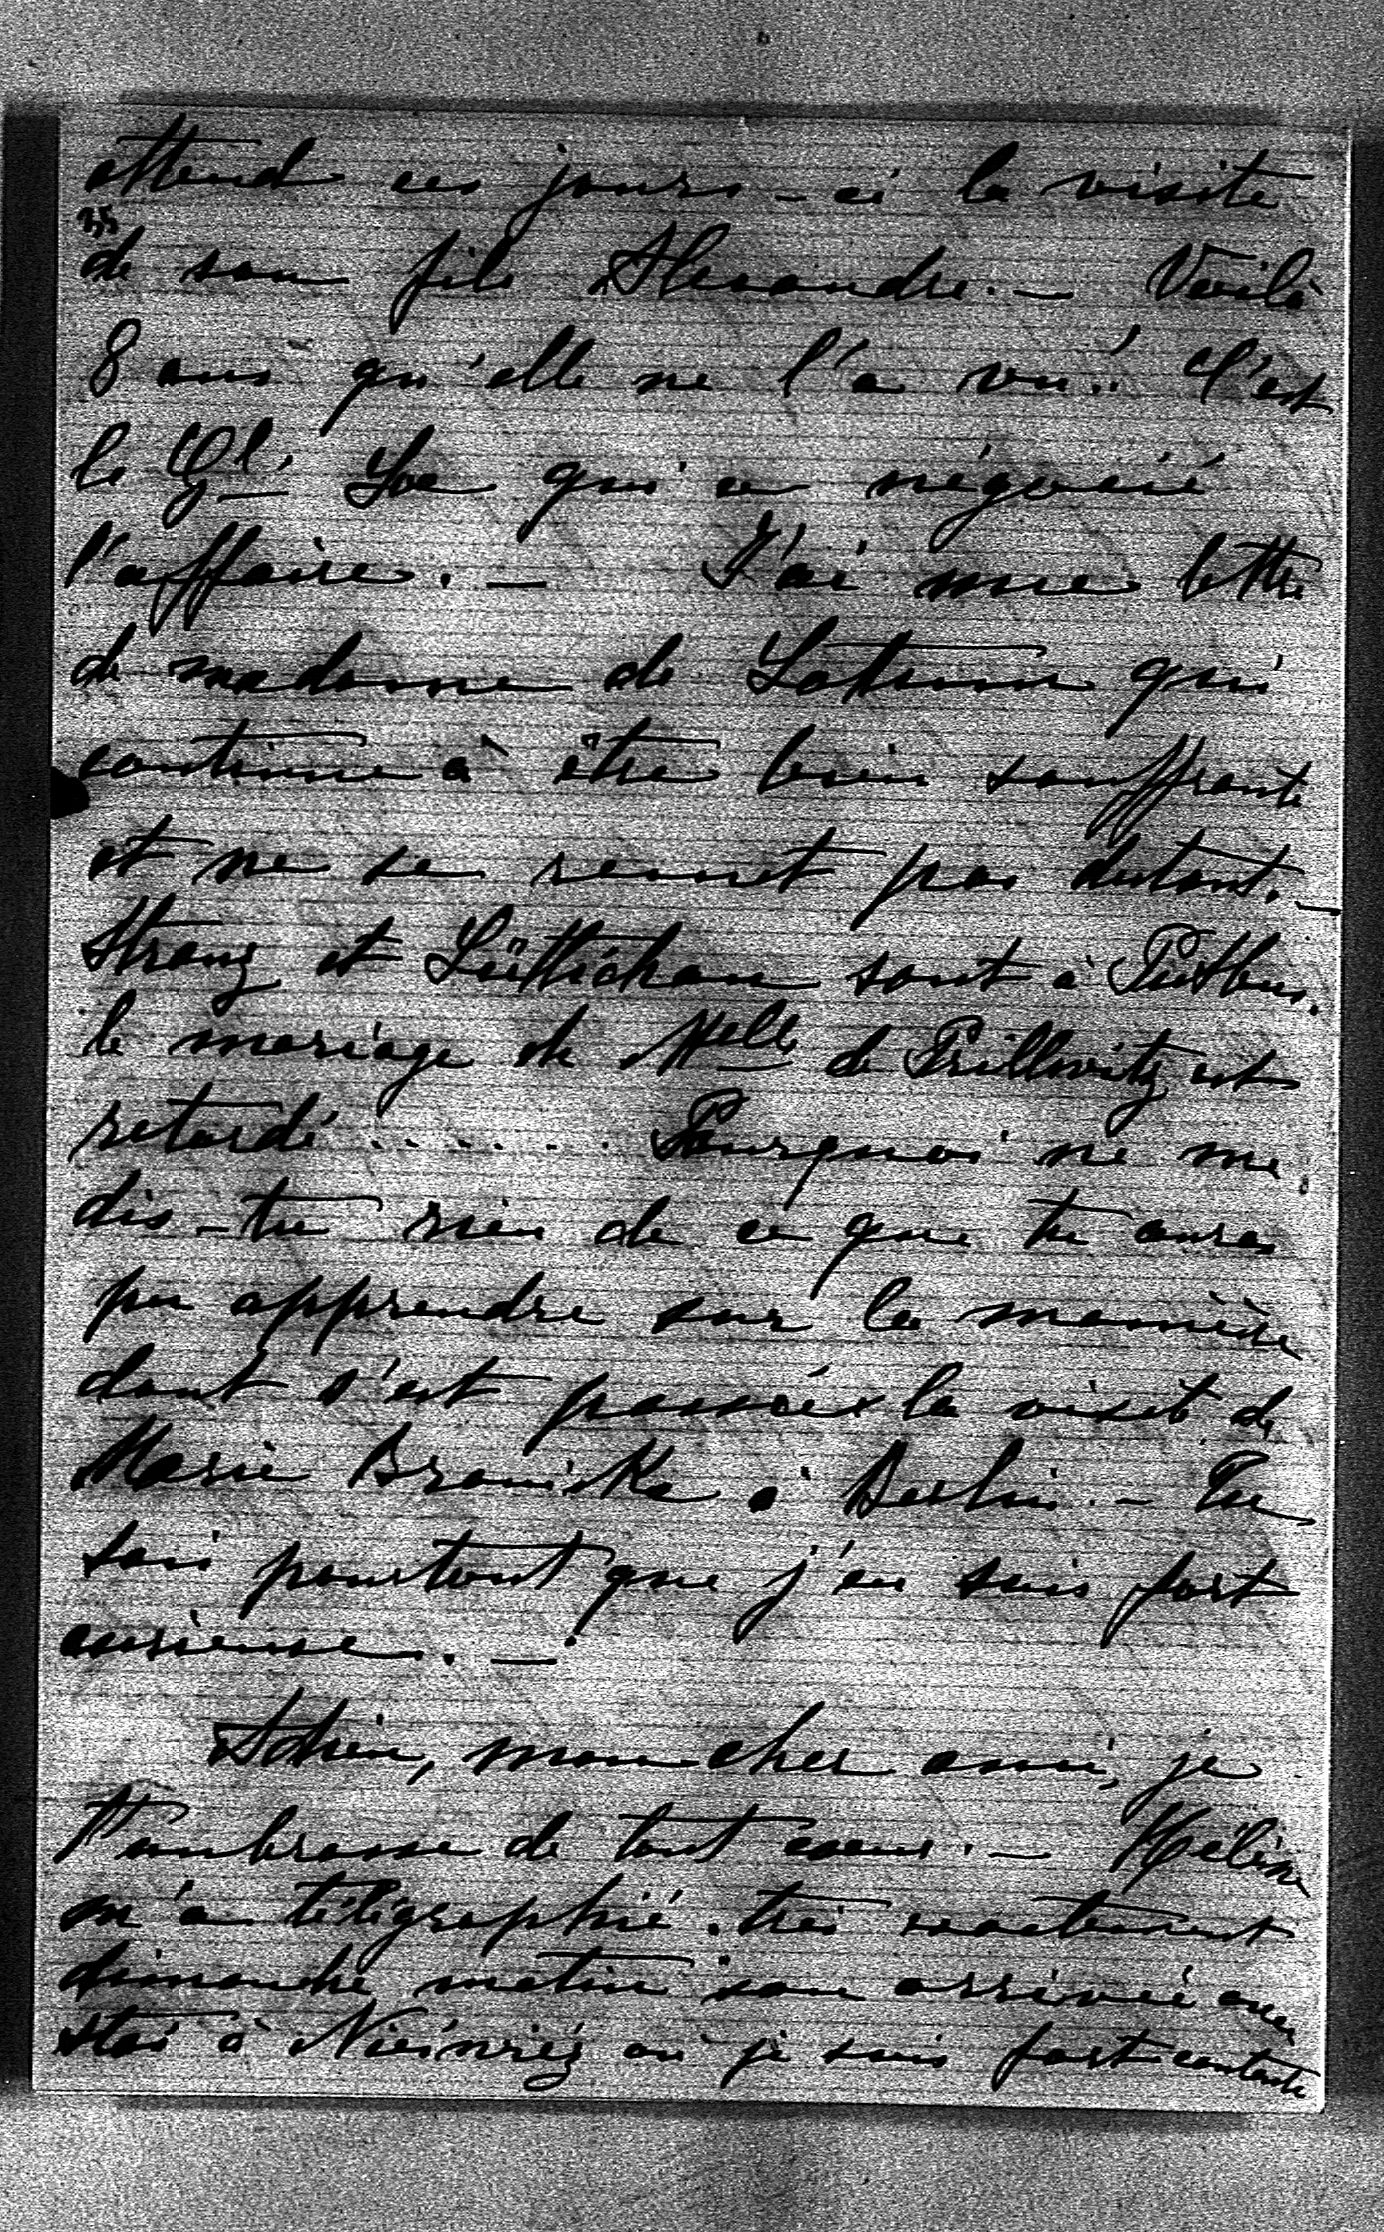 attend ces jours-ci la visite
35
de son fils Alexandre. — Voilà
8 ans qu'elle ne l'a vu!! C'est
le Gl. Loe qui a négocié
l'affaire. — J'ai une lettre
de madame de qui
continue à être bien souffrante
et ne se remet pas du tout. —
Stranz et Lüttichau sont à Putbus.
le mariage de Melle de Prillwitz est
retardé ....... Pourquoi ne me
dis-tu rien de ce que tu auras
pu apprendre sur la manière
dont s'est passée la visite de
Marie Braniska à Berlin. — Tu
sais pourtant que j'en suis fort
curieuse. —
Adieu, mon cher ami, je
t'embrasse de tout coeur. — Hélène
m'a télégraphié très exactement
dimanche matin son arrivée avec
Stas à où je suis fort contente